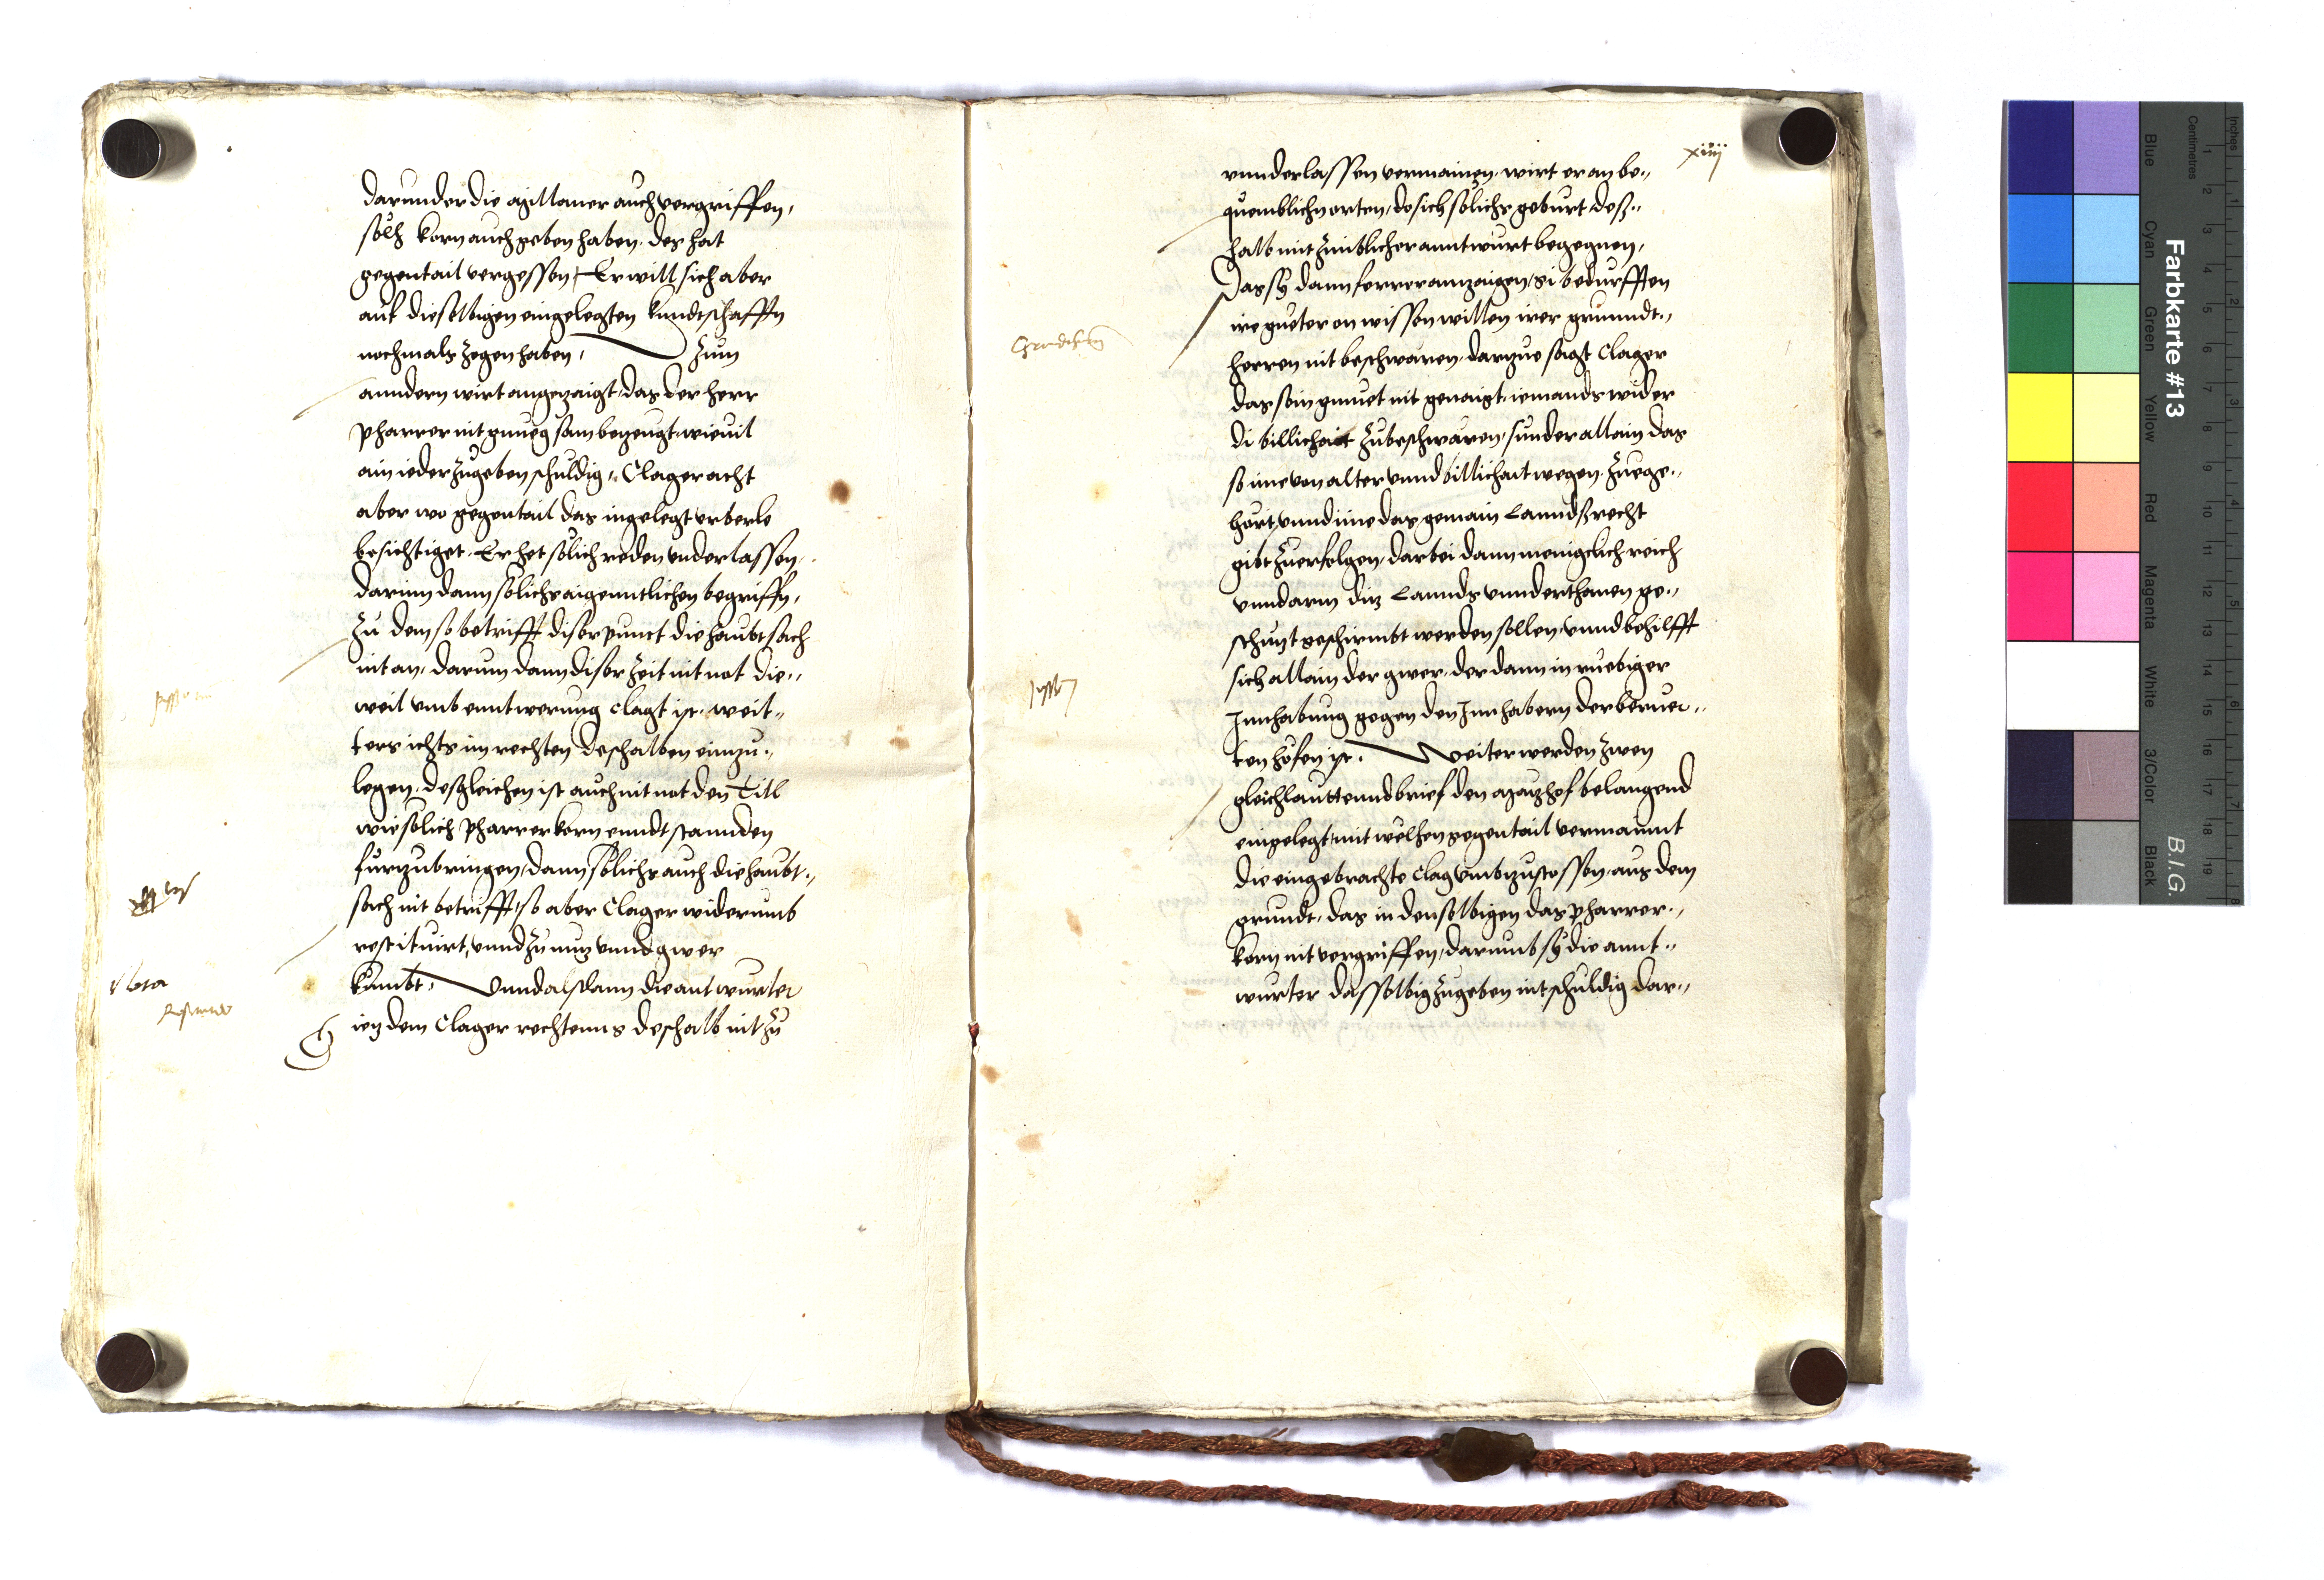 darunder die ayttaner auch vergriffen,
sölh korn auch geben haben. des hat
gegentail vergessen, Er will sich aber
auf dieselbigen eingelegten kundtschafftn
nochmals zogen haben, Zum
anndern wirt angezaigt, das der herr
pharrer nit gnueg sam bezeugt, wieuil
ain ieder zugeben schuldig, Clager acht
aber wo gegentail das ingelegt
besichtiget. Er het sölich reden underlassen,
darinn dann sölichs aigenntlichen begriffn,
Zu dem so betrifft diser punct die haubtsach
nit an, darum dann diser Zeit nit not die„
weil umb enntwerung clagt ist. weit„
ters ichts im rechten deshalben einzu„
legen. desgleichen ist auch nit not den Titl
wie sölich pharrerkorn enndtstannden
furzubringen, dann sölichs auch die haubt„
sach nit betrifft, so aber Clager widerumb
restituirt, unnd zu nuz unnd gwer
kumbt, Unnd alsdann die antwurter
ien dem Clager rechtenns deshalb nit zu
Nota
xiiij
unnderlassen vermainen. wirt er an be„
quemblichn orten, do sich sölichs geburt, des„
halb mit zimblicher anntwurt begegnen,
Das sy dann ferrer anzaigen, si bedurfften
ire gueter on wissen willen irer grunndt„
herren nit beschwären. darzue sagt Clager
das sein gmuet nit genaigt, iemands wider
di billichait zubeschwären, sunder allain das
so ime von alter unnd billichait wegen. zuege„
hört, unnd ime das gemain Lanndsrecht
gibt zuerfolgen, darbei dann menigclich reich
unnd arm diz Lannds unnderthanen ge„
schutzt geschirmbt werden sollen, unnd behilfft
sich allain der gwer, der dann in ruebiger
Innhabung gegen den Innhabern der beruer„
ten höfen ist. Weiter werden zwen
gleichlauttennd brief den hof belangend
eingelegt, mit welhen gegentail vermainnt
die eingebrachte Clag umbzustossen. aus dem
grundt, das in denselbigen das pharrer„
korn nit vergriffen, darumb sy die annt„
wurter dasselbig zugeben nit schuldig dar„
Farbkarte #13
B.I.G.
Blue
Cyan
Green
Yellow
Red
Magenta
White
3/Color
Black
Centimetres
Inches
1 2 3 4 5 6 7 8 9 10 11 12 13 14 15 16 17 18 19
1 2 3 4 5 6 7 8